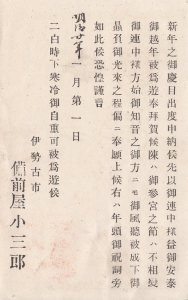 新年之御慶目出度申納候先以御連中様益御安泰
御越年被為遊奉拜賀候陳ハ御參宮之節ハ不相變
御連中様方始御知音之御方ニモ御風聽被成下御
晶負御光來之程偏ニ奉願上候右ハ年頭御祝詞旁
如此候恐惶謹言
明治 年一月第一日
二白時下寒冷御自重可被為遊候
伊勢古市
備前屋小三郎